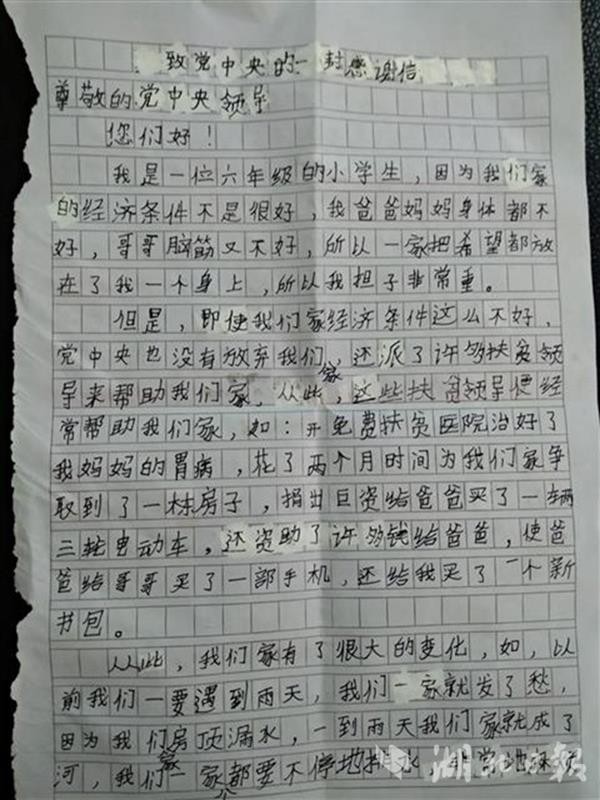 致党中央的一封感谢信
尊敬的党中央领导
您们好！
我是一位六年级的小学生，因为我们家
的经济条件不是很好，我爸爸妈妈身体都不
好，哥哥脑筋又不好，所以一家把希望都放
在了我一个身上，所以我担子非常重。
但是，即使我们家经济条件这么不好，
党中央也没有放弃我们家，还派了许多扶贫领
导来帮助我们家，从此，这些扶贫领导便经
常帮助我们家，如：开免费扶贫医院治好了
我妈妈的胃病，花了两个月时间为我们家争
取到了一栋房子，捐出巨资给爸爸买了一辆
三轮电动车，还资助了许多钱给爸爸，使爸
爸给哥哥买了一部手机，还给我买了一个新
书包。
从此，我们家有了很大的变化，如，以
前我们一要遇到雨天，我们一家就发了愁，
因为我们家房顶漏水，一到雨天我们家就成了
河，我们一家个都要不停地排水，非常地麻烦
湖北日报